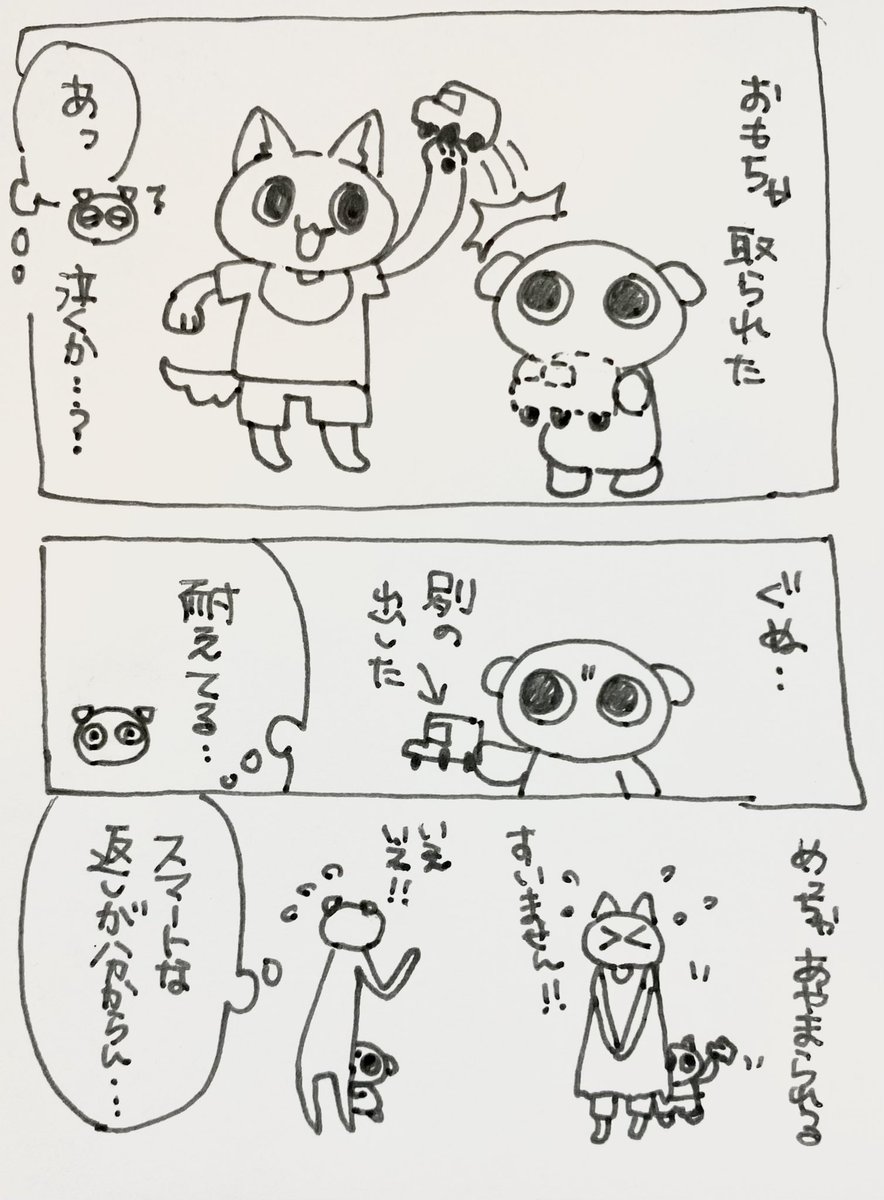 おもちゃ 取られた
あっ
泣くか…?
ぐぬ…
別の
出した
耐えてる…
めっちゃ あやまられる
すいません!!
いえ
いえ!!
スマートな
返しが分からん…